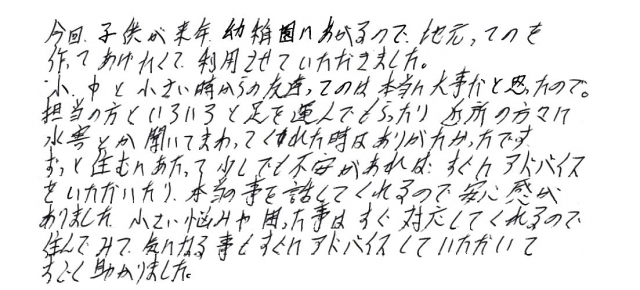 今回、子供が来年、幼稚園にあがるので、地元ってのを
作ってあげたくて、利用させていただきました。
小、中と小さい時からの友達ってのは本当に大事だと思ったので。
担当の方といろいろと足を運んでもらったり 近所の方々に
水害とか聞いてまわってくれた時はありがたかったです
ずっと住むにあたって少しでも不安があれば、すぐにアドバイス
をいただいたり、本当の事を話してくれるので安心感が
ありました。小さい悩みや困った事はすぐ対応してくれるので
住んでみて、気になる事もすぐにアドバイスしていただいて
すごく助かりました。